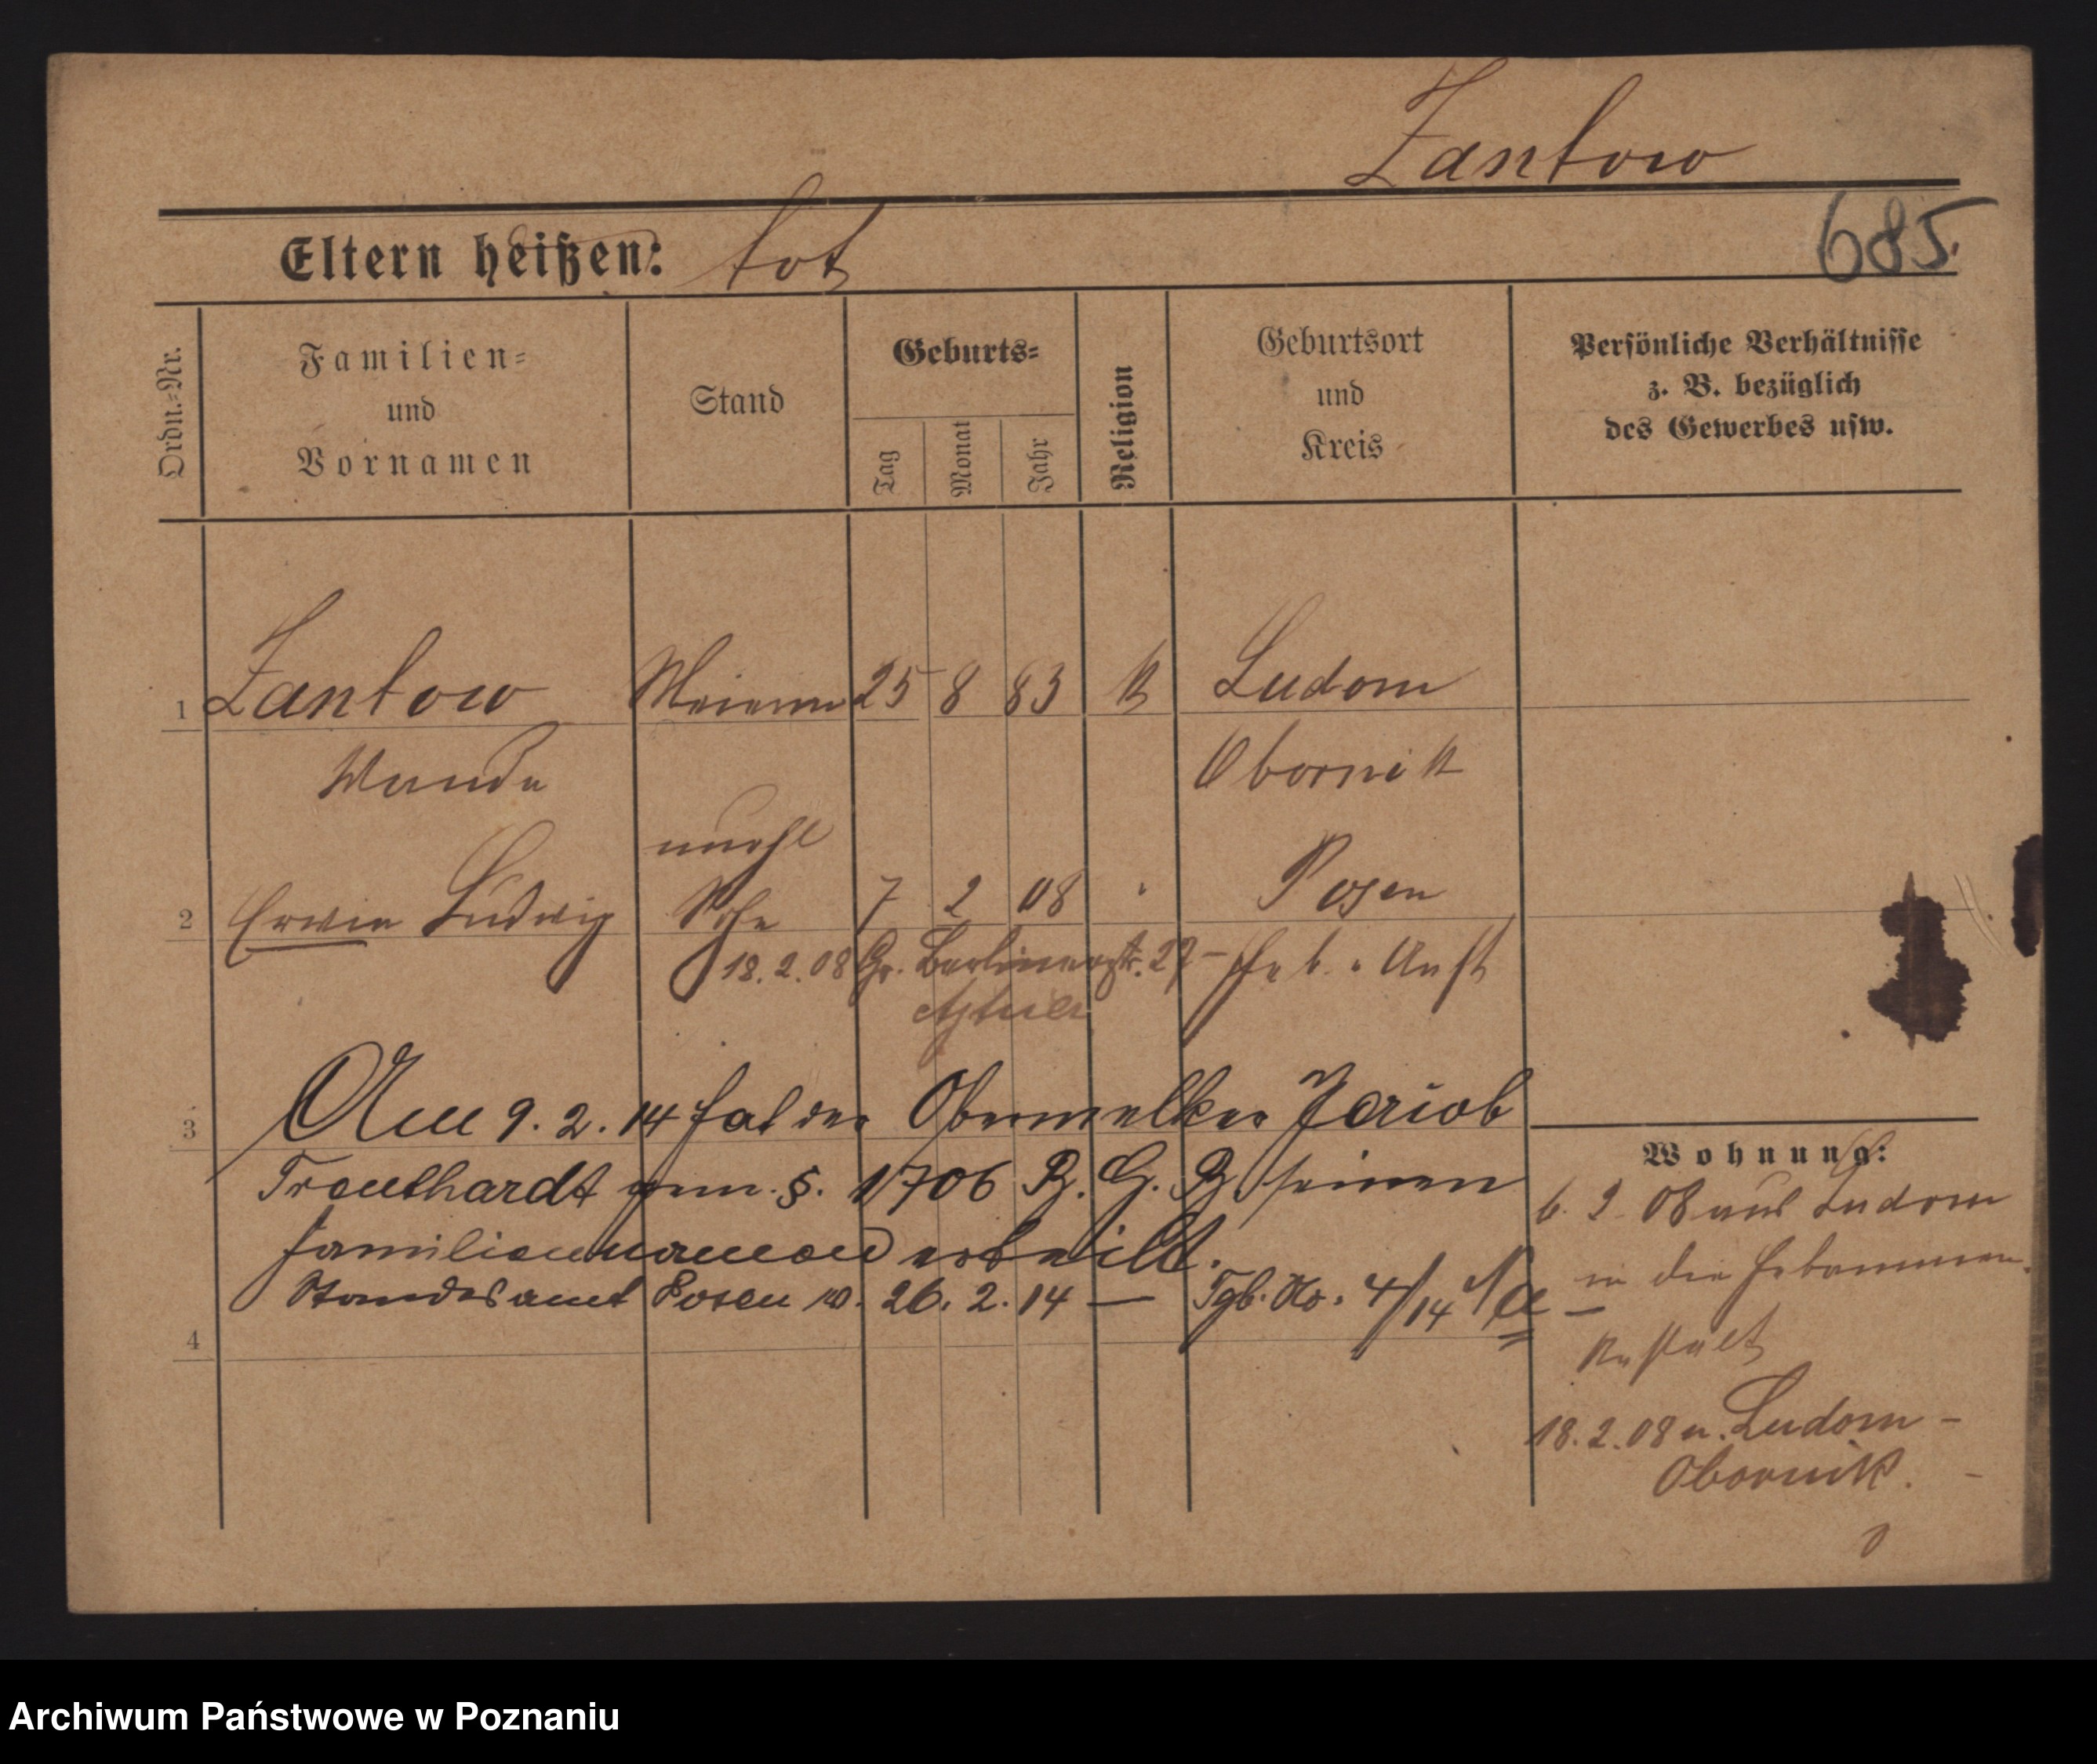 Zantow
685.
Eltern heißen: tot
Ordn.-Nr.
Familien-
und
Vornamen
Stand
Geburts-
Tag
Monat
Jahr
Religion
Geburtsort
und
Kreis
Persönliche Verhältnisse
z. B. bezüglich
des Gewerbes usw.
1 Zantow 25 8 83 k Ludom
Wanda Obornik
unehl
2 Erwin Ludwig Sohn 7 2 08 " Posen
18.2.08 Gr. Berlinerstr. 27 - Heb. Anst
3 Am 9. 2. 14 hat der Obermelker Jakob
Trauthardt gem. §. 1706 B. G. B. seinen
Familiennamen erteilt.
Standesamt Posen W. 26. 2. 14 — Tgb. No. 4/14
4
Wohnung:
6. 2. 08 aus Ludom
in die Hebammen
Anstalt
18. 2. 08 n. Ludom -
Obornik. -
Archiwum Państwowe w Poznaniu